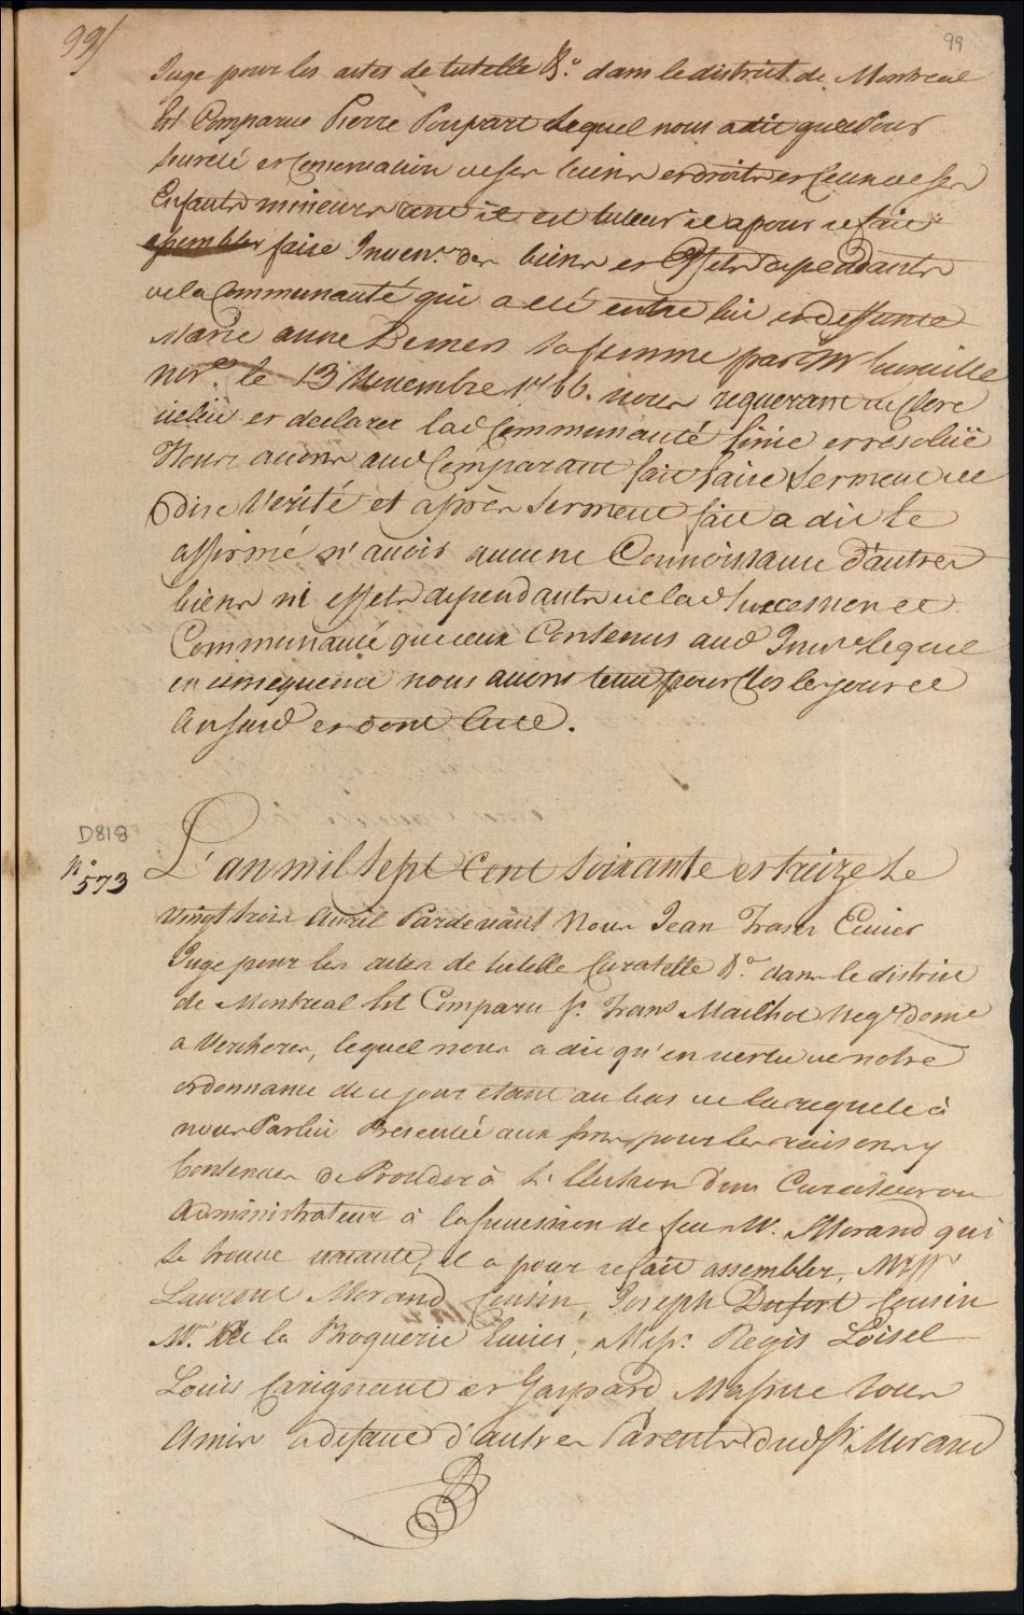 99/
99
Juge pour les actes de tutelle &c.ª dans le district de Montreal
Est Comparue Pierre Poupart Lequel nous a dit que Pour
Sureté et Conservation de ses biens et droits et Ceux de ses
Enfants mineurs dont il est tuteur il a pour ce fait
assembler faire Inven.re des biens et Effets dependants
de la Communauté qui a eté entre lui et deffunte
Marie anne Demers sa femme par Mr
Not.re le 13 Novembre 1766. nous requerant de Clore
icelui et declarer lad Communauté finie et resolüe
Nous avons aud Comparant fait faire Serment de
Dire Verité et après Serment fait a dit et
affirmé n'avoir aucune Connoissance d'autres
biens ni effets dependants de lad Succession et
Communauté que ceux Contenus aud Inv.re lequel
en consequence nous avons tenu pour Clos les jour et
An susd et dont acte.
D818
N.º 573
L'an mil sept Cent soixante et treize Le
Vingt trois Avril Pardevant Nous Jean Fraser Ecuier
Juge pour les actes de tutelle Curatelle &.ª dans le district
de Montreal Est Comparu Sr. Frans Mailhot neg.t dome
a Vercheres, lequel nous a dit qu'en vertu de notre
ordonnance de ce jour etant au bas de la requete à
nous Par lui Presentée aux fins pour les raisons y
Contenues de Proceder à L'Election d'un Curateur ou
Administrateur à la succession de feu W. Morand qui
Se trouve vacante, il a pour ce fait assembler, Mess.rs
Laurent Morand Cousin, Joseph Dufort Cousin
Mr. De la Broquerie Ecuier, Mess.rs Regis Loisel
Louis Carignant et Gaspard Massue tous
Amis a defaut d'autres Parents dud Sr Morand